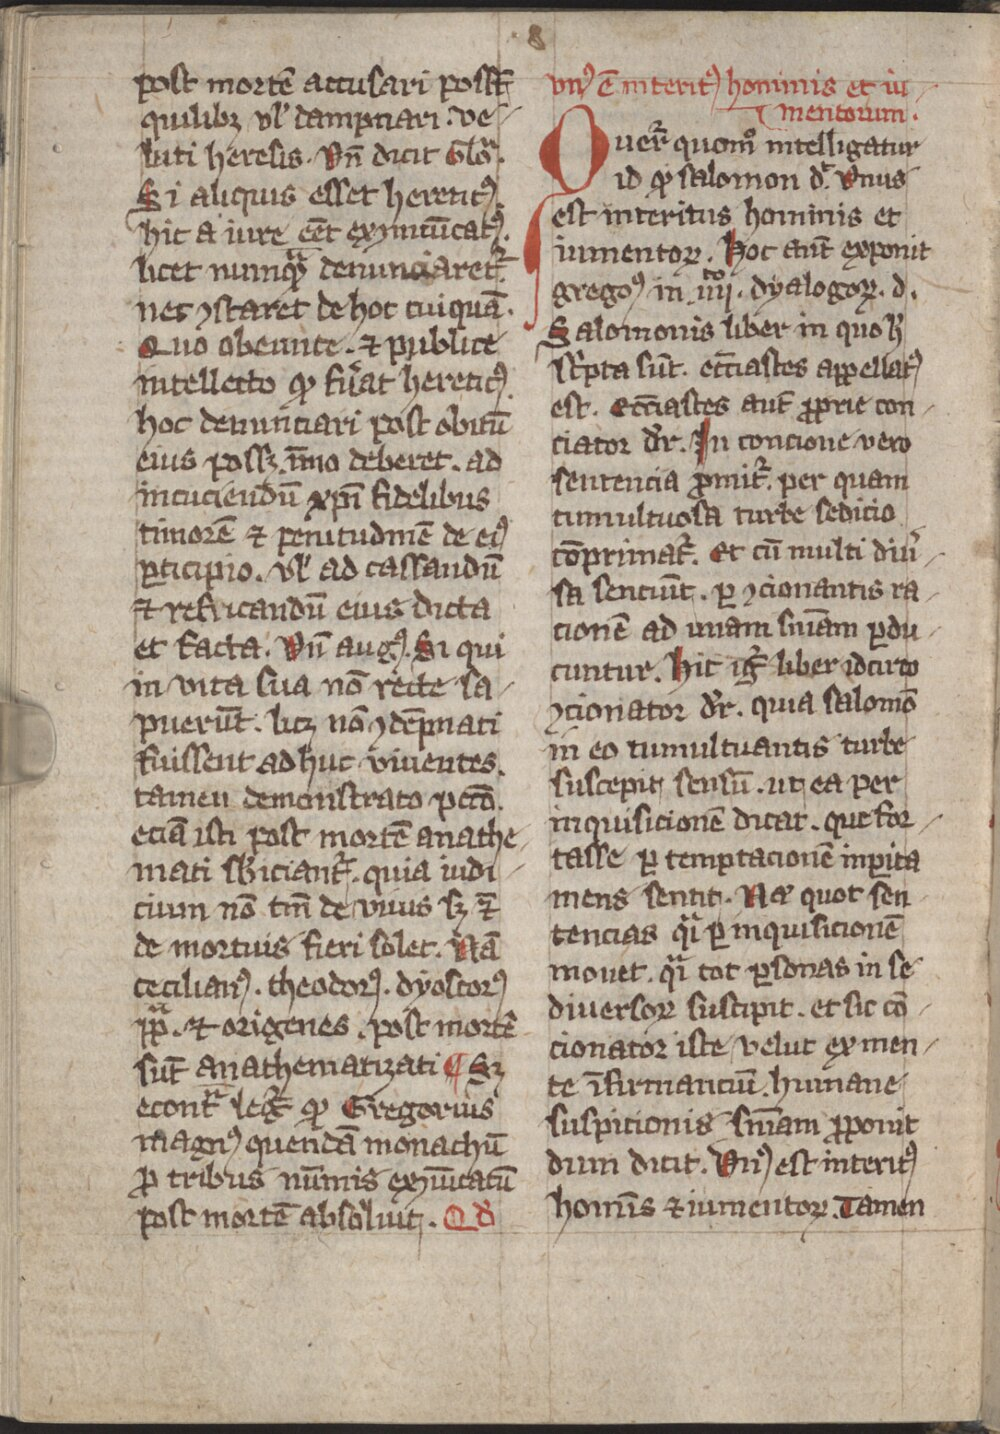 8
post mortē accusari possēt
quilibꝫ vl̓ dampnari. ve-
luti heresis. Vn̄ dicit Glos̓.
Si aliquis esset hereticꝰ.
hic a iure eēt exꝯīcatꝰ.
licet nūquā denūciaret᷑
nec ꝯstaret de hoc cuiquā.
Quo obeunte. ⁊ publice
intellecto ꝙ fūat hereticꝰ.
hoc denūnciari post obitū
eius possꝫ. īmo deberet. ad
incuciendū xp̄i fidelibus
timorē ⁊ penitudīnē de eiꝰ
ꝑticipio. vl̓ ad cassandū
⁊ refricandū eius dicta
et facta. Vn̄ augꝰ. Si qui
in vita sua nō recte sa-
puerūt. licꝫ nō ꝯdēpnati
fuissent adhuc viventes.
tamen demonstrato pccō.
eciā isti post mortē anathe-
mati sb̓iciant᷑. quia iudi-
cium nō tm̄ de viuis sꝫ ⁊
de mortuis fieri solet. Nā
cecilianꝰ. theodorꝰ. dyoscorꝰ
pp̄a. ⁊ origenes. post mortē
sūt anathematizati ¶ Sꝫ
econt̓ leg᷑ ꝙ Gregorius
magnꝰ quendā monachū
ꝓ tribus nūmis exꝯīcatū
post mortē absoluit. Qd̓
vnꝰ ē interitꝰ hominis et iu-
mentorum.
Quer᷑ quom̊ intelligatur
id ꝙ salomon d᷑. Vnus
est interitus hominis et
iumentoꝝ. Hoc aut̄ exponit
gregoꝰ in iiijᵗᵒ. dyalogoꝝ. d.
Salomonis liber in quo h̓
sc̓pta sūt. ecc̄iastes appellatꝰ
est. ecc̄iastes aut̄ ꝓprie con-
ciator dr̄. In concione vero
sentencia ꝓmit᷑. per quam
tumultuosa turbe sedicio
cōprimat᷑. et cū multi diu̓-
sa senciūt. ꝑ ꝯcionantis ra-
cionē ad unam sn̄iam ꝑdu-
cuntur. Hic igr̄ liber idcirco
ꝯcionator dr̄. quia salomō
in eo tumultuantis turbe
suscepit sensū. ut ea per
inquisicionē dicat. que for-
tasse ꝑ temptacionē inpita
mens sentit. Nā quot sen-
tencias qᵃi ꝑ inquisicionē
mouet. qᵃi tot ꝑsonas in se
diuersoꝝ suscipit. et sic cō-
cionator iste velut ex men-
te īfirmanciū humane
suspicionis sn̄iam ꝓponit
dum dicit. Vnꝰ est interitꝰ
homīs ⁊ iumentoꝝ. Tamen